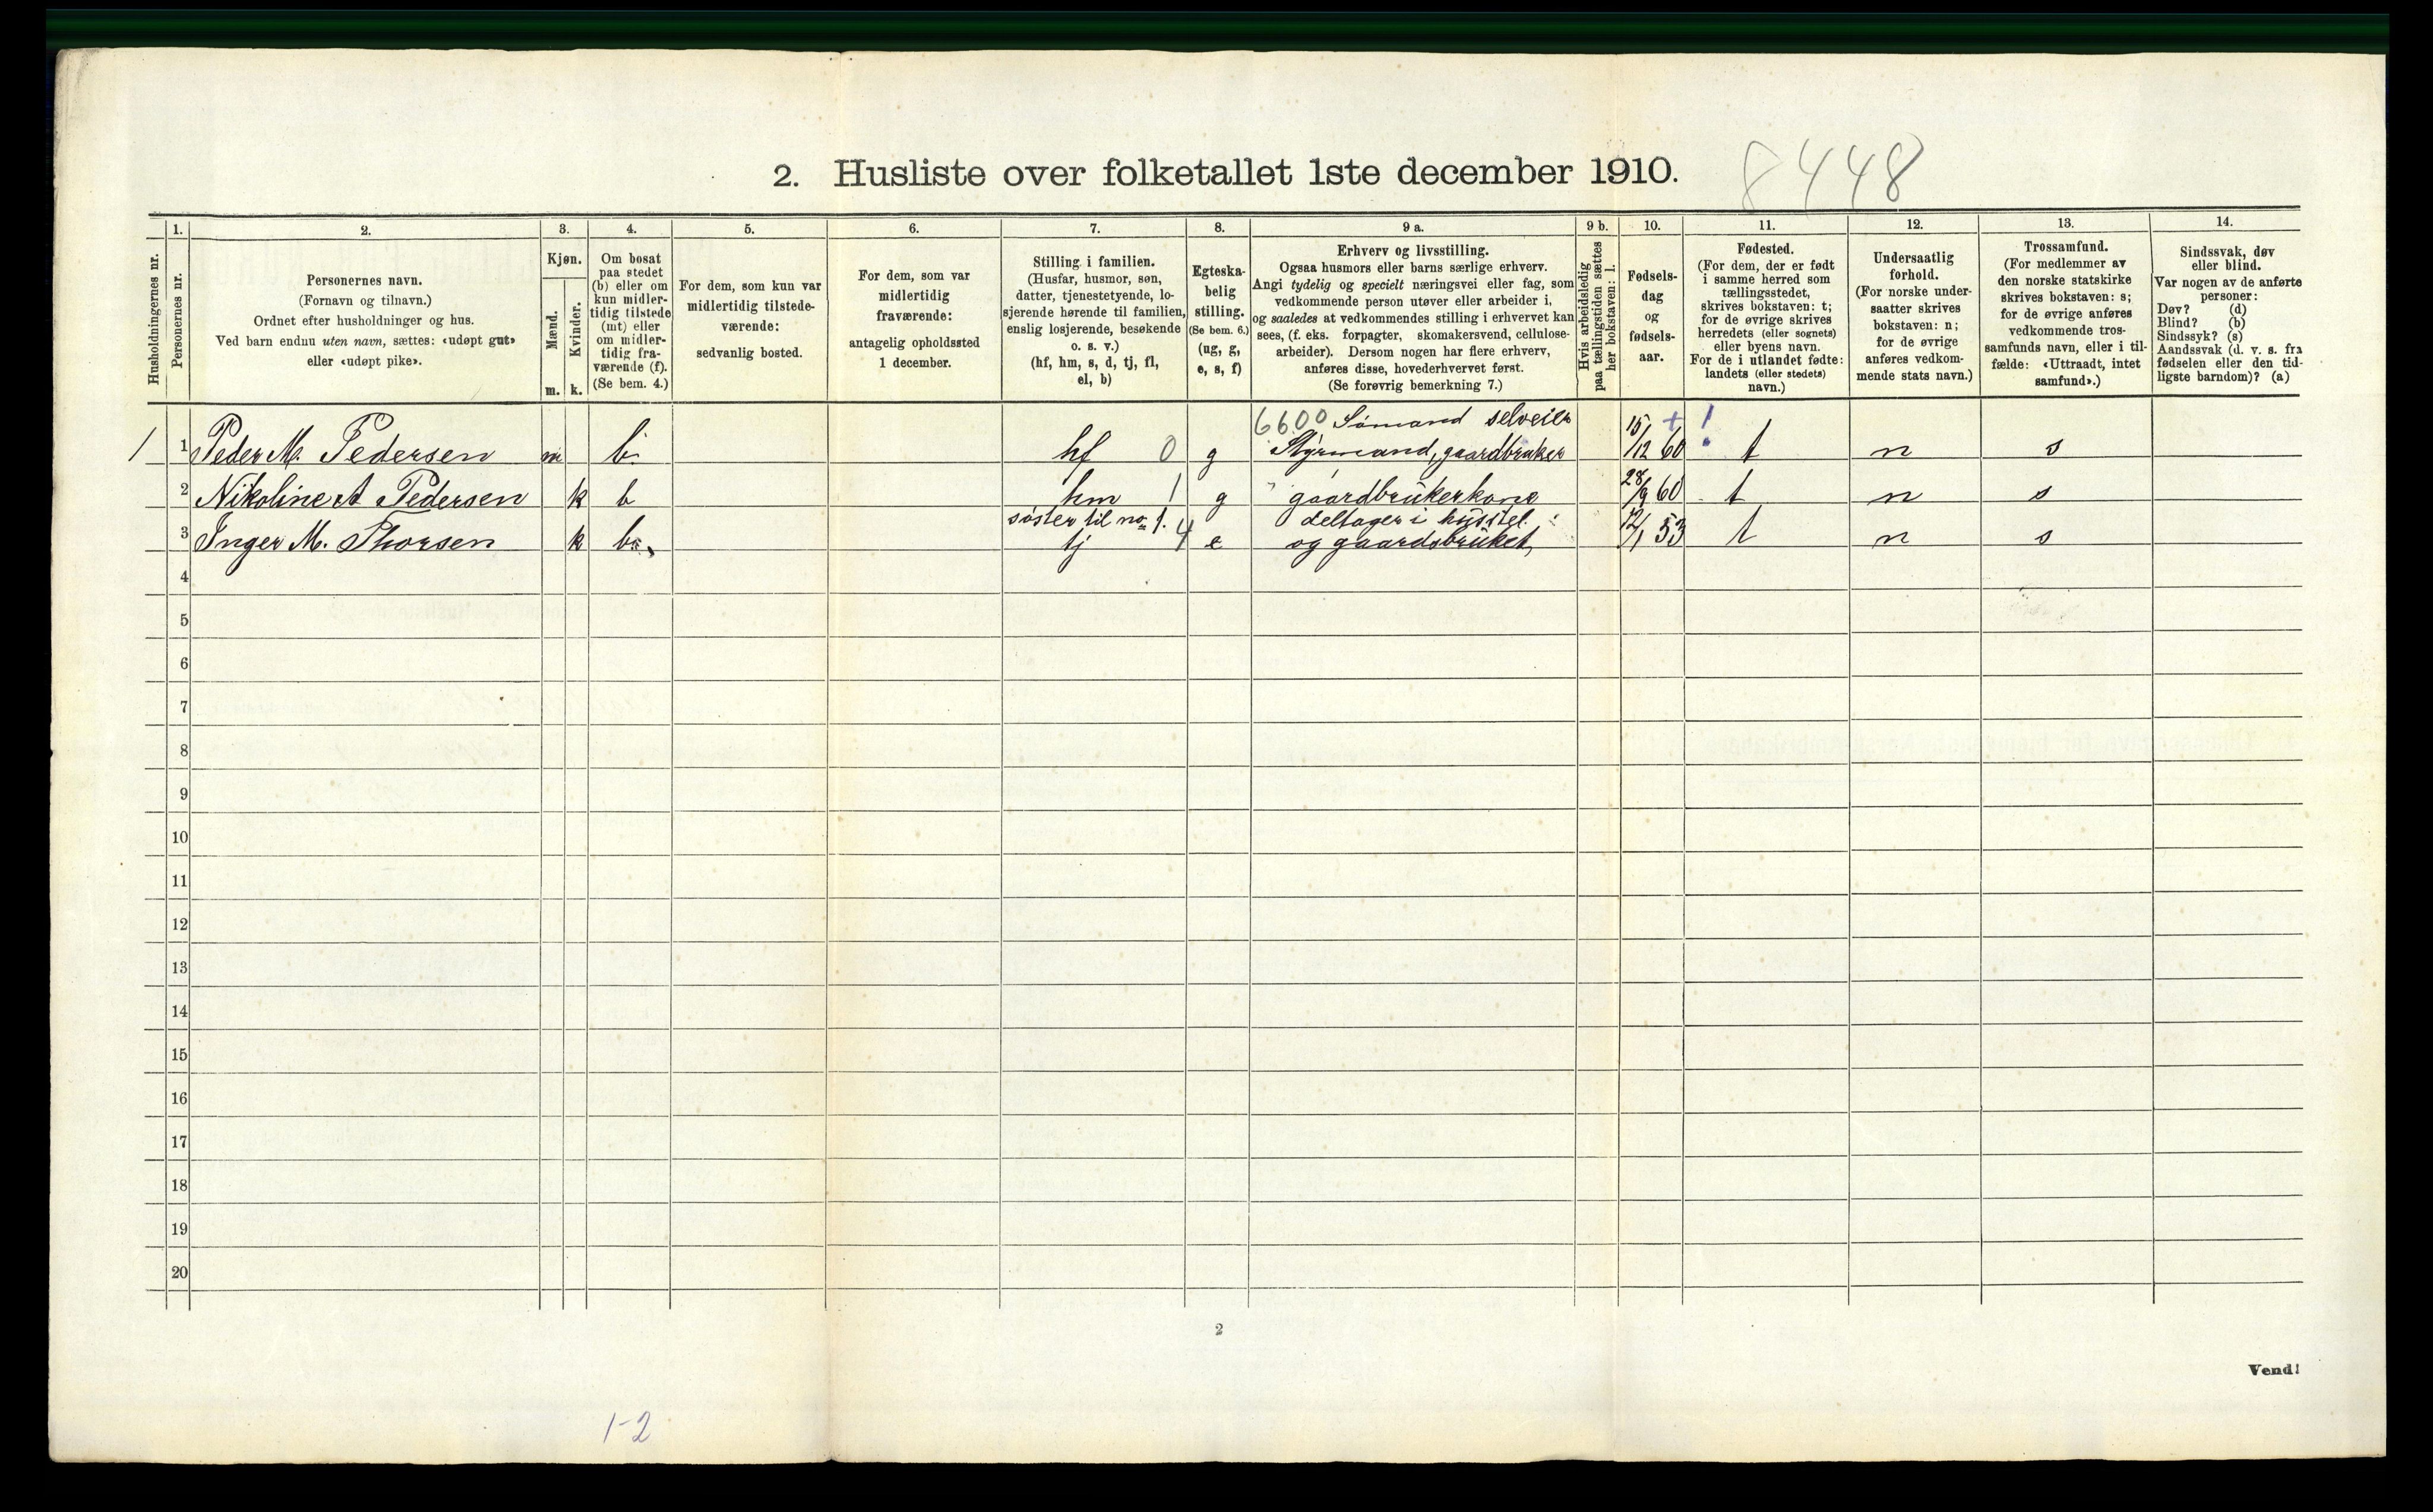 2. Husliste over folketallet 1ste december 1910.
8448
Husholdningernes nr.
1.
Personernes nr.
2.
Personernes navn.
(Fornavn og tilnavn.)
Ordnet efter husholdninger og hus.
Ved barn endnu uten navn, sættes: «udøpt gut»
eller «udøpt pike».
3.
Kjøn.
Mænd.
Kvinder.
m. k.
4.
Om bosat
paa stedet
(b) eller om
kun midler-
tidig tilstede
(mt) eller
om midler-
tidig fra-
værende (f).
(Se bem. 4.)
5.
For dem, som kun var
midlertidig tilstede-
værende:
sedvanlig bosted.
6.
For dem, som var
midlertidig
fraværende:
antagelig opholdssted
1 december.
7.
Stilling i familien.
(Husfar, husmor, søn,
datter, tjenestetyende, lo-
sjerende hørende til familien,
enslig losjerende, besøkende
o. s. v.)
(hf, hm, s, d, tj, fl,
el, b)
8.
Egteska-
belig
stilling.
(Se bem. 6.)
(ug, g,
e, s, f)
9 a.
Erhverv og livsstilling.
Ogsaa husmors eller barns særlige erhverv.
Angi tydelig og specielt næringsvei eller fag, som
vedkommende person utøver eller arbeider i,
og saaledes at vedkommendes stilling i erhvervet kan
sees, (f. eks. forpagter, skomakersvend, cellulose-
arbeider). Dersom nogen har flere erhverv,
anføres disse, hovederhvervet først.
(Se forøvrig bemerkning 7.)
9 b.
Hvis arbeidsledig
paa tællingstiden sættes
her bokstaven: l.
10.
Fødsels-
dag
og
fødsels-
aar.
11.
Fødested.
(For dem, der er født
i samme herred som
tællingsstedet,
skrives bokstaven: t;
for de øvrige skrives
herredets (eller sognets)
eller byens navn.
For de i utlandet fødte:
landets (eller stedets)
navn.)
12.
Undersaatlig
forhold.
(For norske under-
saatter skrives
bokstaven: n;
for de øvrige
anføres vedkom-
mende stats navn.)
13.
Trossamfund.
(For medlemmer av
den norske statskirke
skrives bokstaven: s;
for de øvrige anføres
vedkommende tros-
samfunds navn, eller i til-
fælde: «Uttraadt, intet
samfund».)
14.
Sindssvak, døv
eller blind.
Var nogen av de anførte
personer:
Døv? (d)
Blind? (b)
Sindssyk? (s)
Aandssvak (d. v. s. fra
fødselen eller den tid-
ligste barndom)? (a)
6600 Sømand selveier 15 + !
1 1 Peder M. Pedersen m b hf 0 g Styrmand, gaardbruker /12 60 t n s
2 Nikoline A Pedersen k b hm 1 g " gaardbrukerkone 28/9 60 t n s
søster til no 1. deltager i husstel
3 Inger M. Thorsen k b tj 4 e og gaardsbruket 12/1 53 t n s
4
5
6
7
8
9
10
11
12
13
14
15
16
17
18
19
20
2
Vend!
1-2